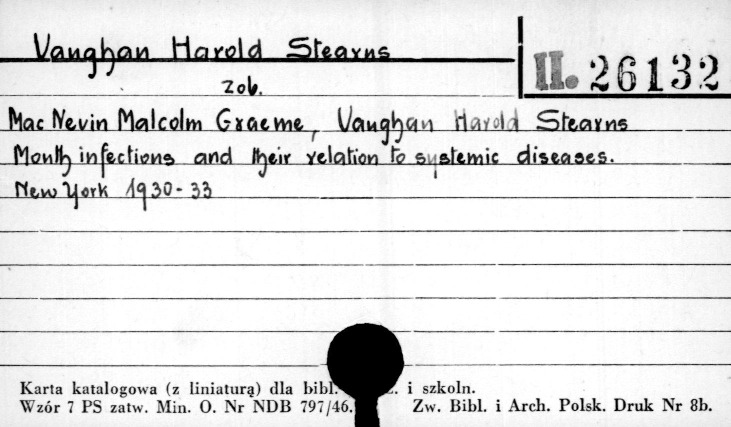 Vaughan Harold Stearns
II. 26132
zob.
Mac Nevin Malcolm Graeme, Vaughan Harold Stearns
Mouth infections and their relation to systemic diseases.
New York 1930-33
Karta katalogowa (z liniaturą) dla bibl. i szkoln.
Wzór 7 PS zatw. Min. O. Nr NDB 797/46. Zw. Bibl. i Arch. Polsk. Druk Nr 8b.